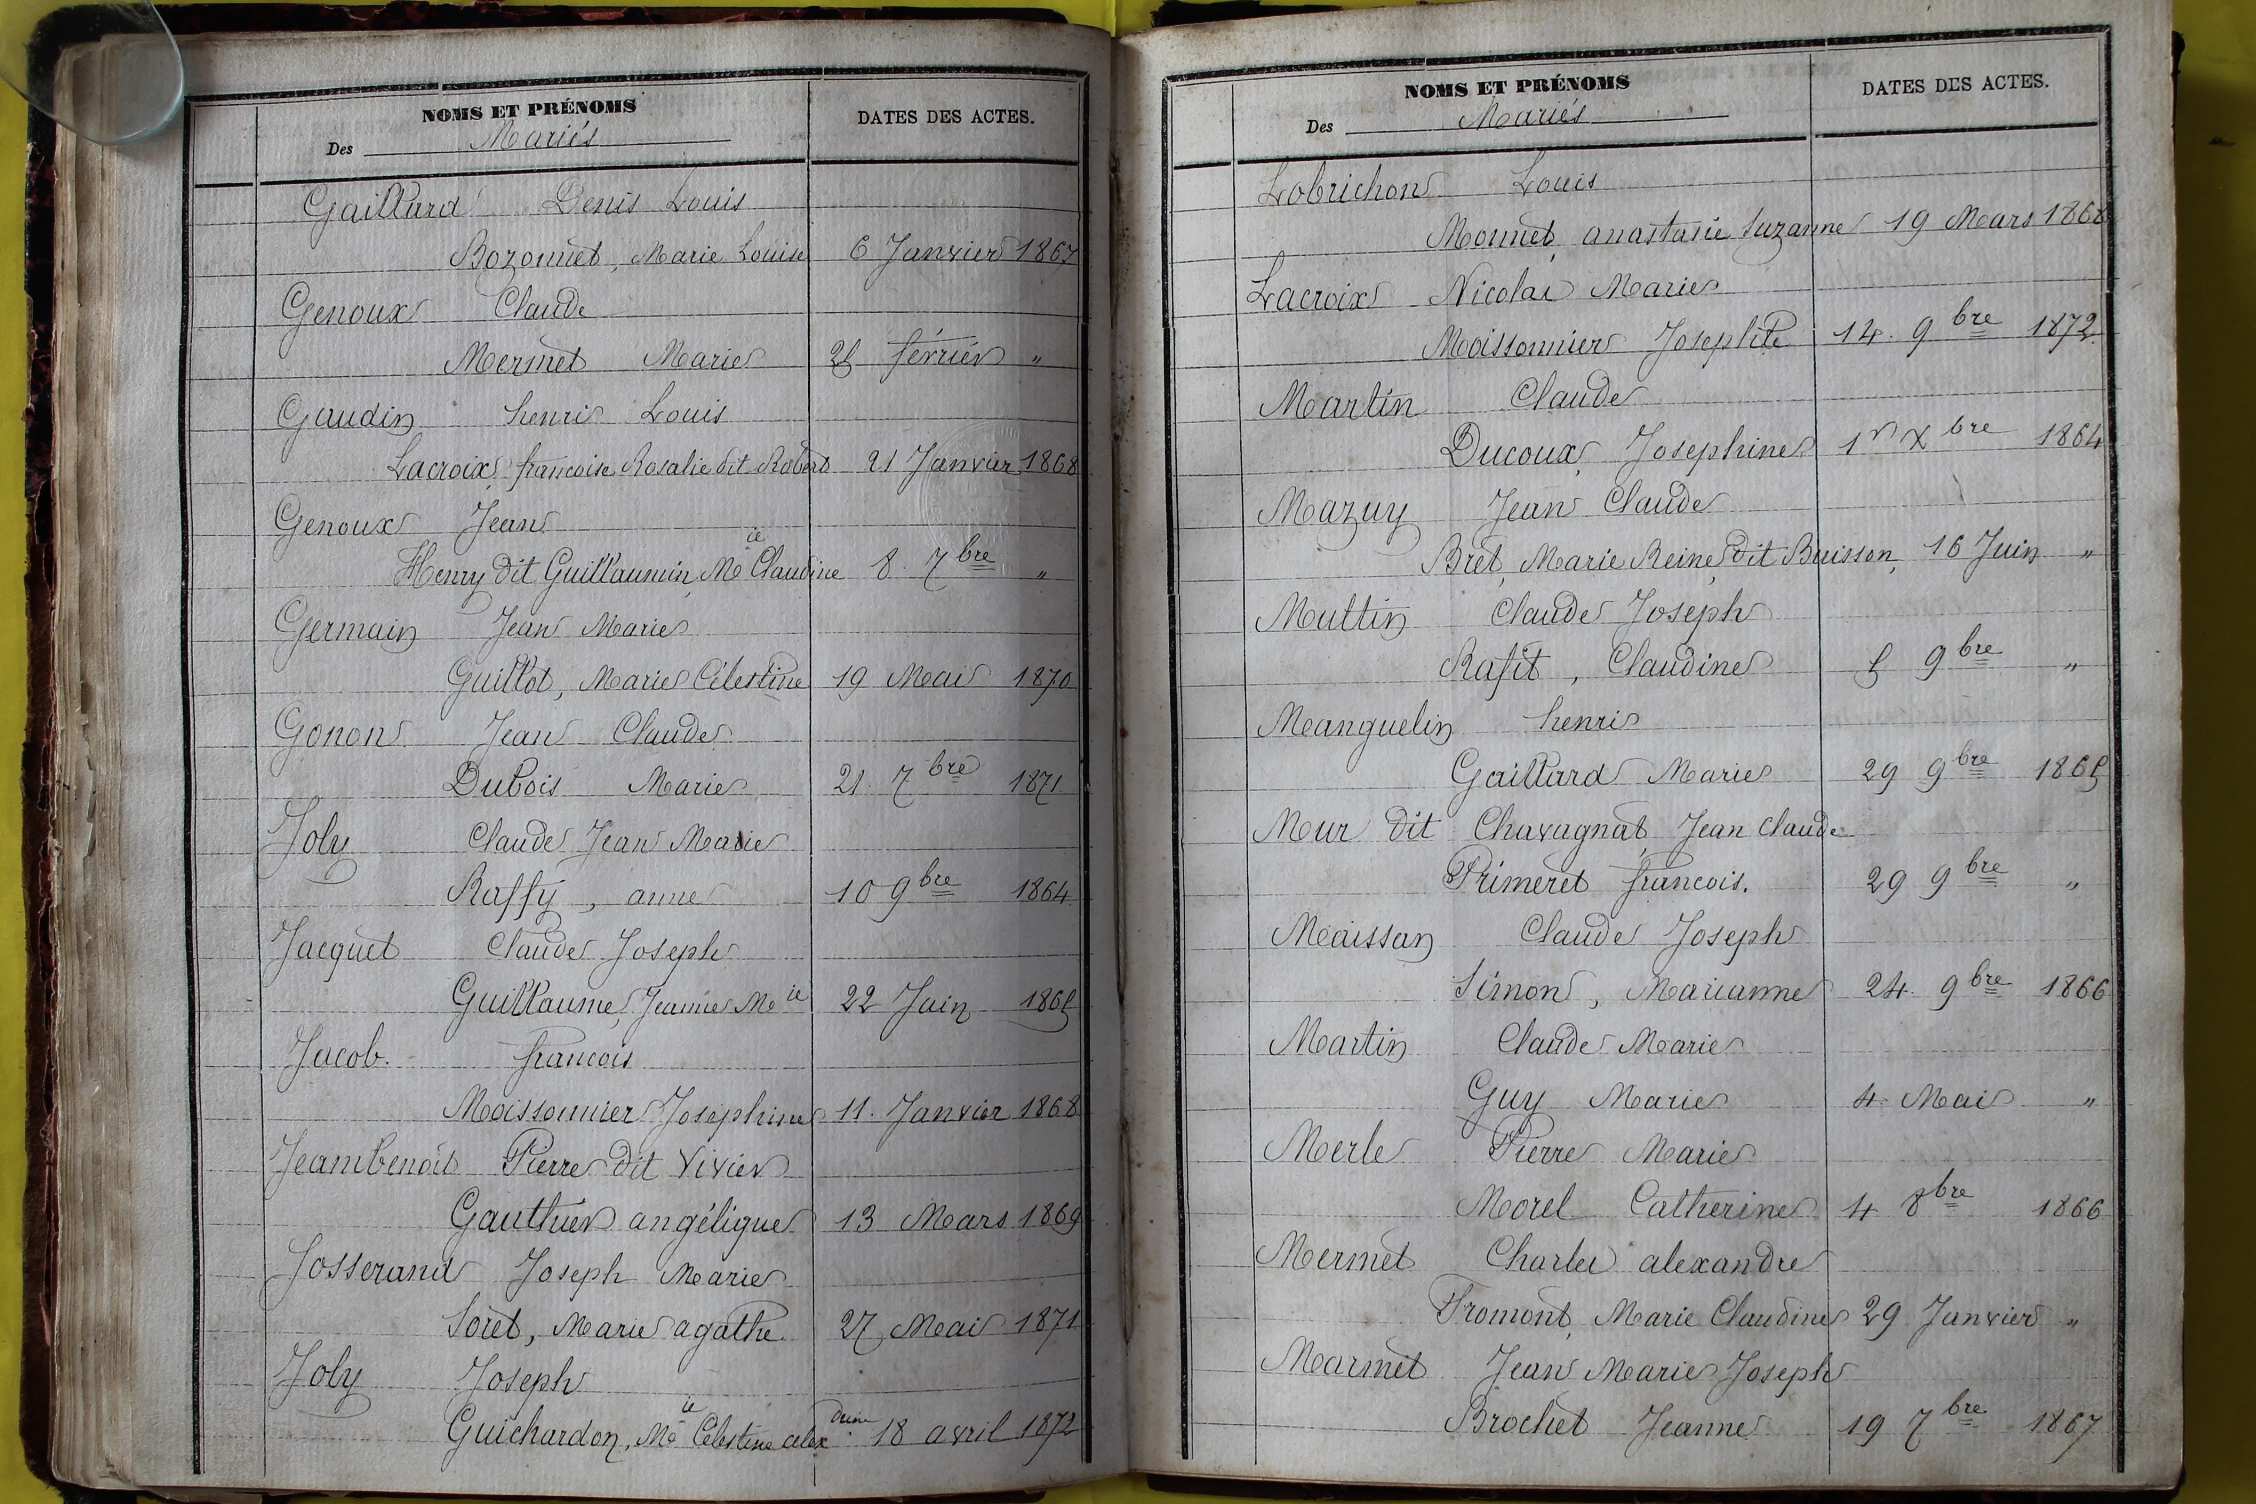 NOMS ET PRÉNOMS
DATES DES ACTES.
Des Mariés
Gaillard Denis Louis
Bozonnet, Marie Louise 6 Janvier 1867
Genoux Claude
Mermet Marie février "
Gaudin henri Louis
Lacroix, francoise Rosalie dit Robert 21 Janvier 1868
Genoux Jean
Henry dit Guillaumin, Mie Claudine 8 7bre "
Germain Jean Marie
Guillot, Marie Célestine 19 Mai 1870
Gonon Jean Claude
Dubois Marie 21 7bre 1871
Joly Claude Jean Marie
Raffy, anne 10 9bre 1864
Jacquet Claude Joseph
Guillaume, Jeanne Mie 22 Juin 1865
Jacob. francois
Moissonnier Josephine 11. Janvier 1868
Jeambenoit Pierre dit Vivier
Gauthier angélique 13 Mars 1869
Josserand Joseph Marie
Soret, Marie agathe. 27 Mai 1871
Joly Joseph
Guichardon, Mie Célestine alexdrine 18 avril 1872
NOMS ET PRÉNOMS
DATES DES ACTES.
Des Mariés
Lobrichon Louis
Monnet, anastasie Suzanne 19 Mars 1868
Lacroix Nicolas Marie
Moissonnier Josephte 14. 9bre 1872.
Martin Claude
Ducoux, Josephine 1er Xbre 1864
Mazuy Jean Claude
Bret, Marie Reine, dit Buisson, 16 Juin "
Muttin Claude Joseph
Rafit, Claudine 5 9bre "
Manguelin henri
Gaillard Marie 29 9bre 1865
Mur dit Chavagnat, Jean Claude
Primeret francois. 29 9bre "
Maissan Claude Joseph
Simon, Marianne 24. 9bre 1866
Martin Claude Marie
Guy Marie 4 Mai "
Merle Pierre Marie
Morel Catherine 4 8bre 1866
Mermet Charles alexandre
Fromont, Marie Claudine 29 Janvier "
Marmet Jean Marie Joseph
Brochet Jeanne 19 7bre 1867